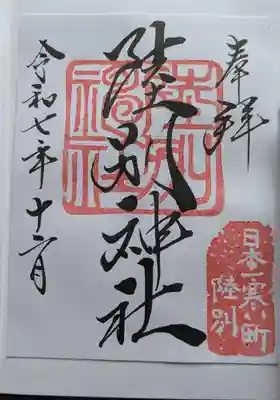 奉拝
陸別神社
陸別
神社
日本一寒い町
陸別
令和七年十二月